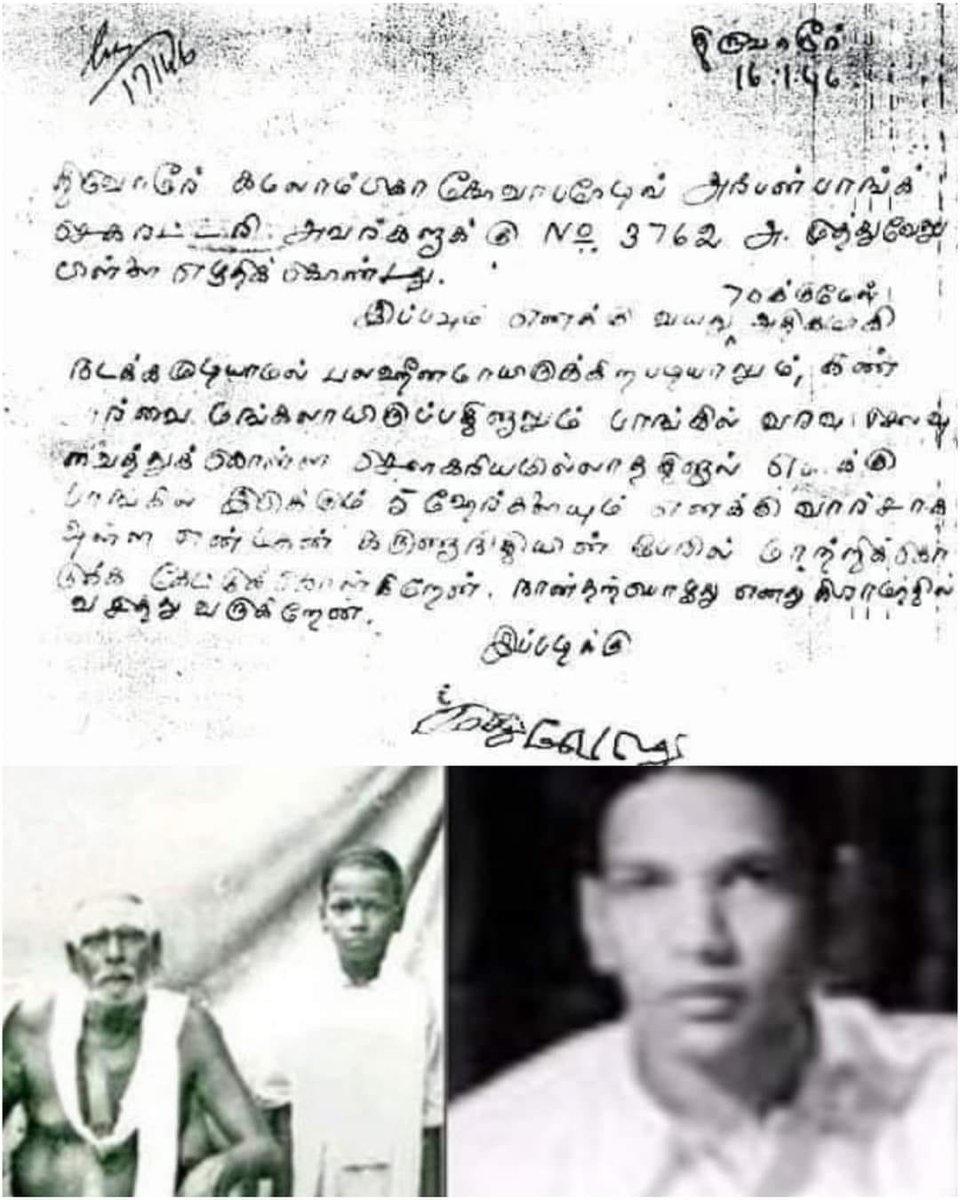 17/1/46
திருவாரூர்
16.1.46
திருவாரூர் கமலாம்பிகா கோவாபரேடிவ் அர்பன் பாங்க்
செகரட்டரி அவர்களுக்கு No 3762 அ. முத்துவேலு
பிள்ளை எழுதிக் கொண்டது.
70க்குமேல்
இப்பவும் எனக்கு வயது அதிகமாகி
நடக்க முடியாமல் பலஹீனமாயிருக்கிறபடியாலும், கண்
பார்வை மங்கலாயிருப்பதினாலும் பாங்கில் வரவு செலவு
வைத்துக் கொள்ள சௌகரியமில்லாததினால் க்ஷ
பாங்கில் இருக்கும் 5 ஷேர்களையும் எனக்கு வார்சாக
உள்ள என் மகன் கருணாநிதியின் பேரில் மாற்றிக்கொ
டுக்க கேட்டுக் கொள்கிறேன். நான் தற்பொழுது எனது கிராமத்தில்
வசித்து வருகிறேன்.
இப்படிக்கு
முத்துவேலு